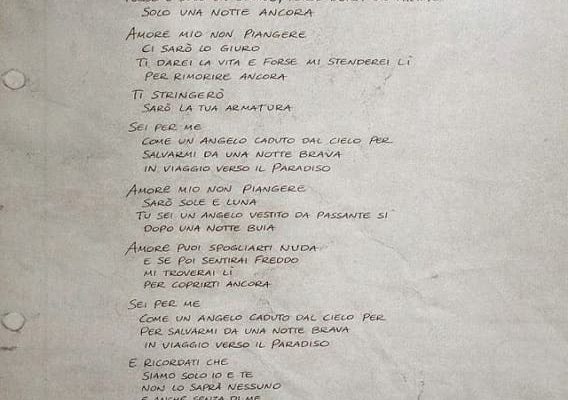 SOLO UNA NOTTE ANCORA
AMORE MIO NON PIANGERE
CI SARÒ LO GIURO
TI DAREI LA VITA E FORSE MI STENDEREI LÌ
PER RIMORIRE ANCORA
TI STRINGERÒ
SARÒ LA TUA ARMATURA
SEI PER ME
COME UN ANGELO CADUTO DAL CIELO PER
SALVARMI DA UNA NOTTE BRAVA
IN VIAGGIO VERSO IL PARADISO
AMORE MIO NON PIANGERE
SARÒ SOLE E LUNA
TU SEI UN ANGELO VESTITO DA PASSANTE SÌ
DOPO UNA NOTTE BUIA
AMORE PUOI SPOGLIARTI NUDA
E SE POI SENTIRAI FREDDO
MI TROVERAI LÌ
PER COPRIRTI ANCORA
SEI PER ME
COME UN ANGELO CADUTO DAL CIELO PER
PER SALVARMI DA UNA NOTTE BRAVA
IN VIAGGIO VERSO IL PARADISO
E RICORDATI CHE
SIAMO SOLO IO E TE
NON LO SAPRÀ NESSUNO
E ANCHE SENZA DI ME